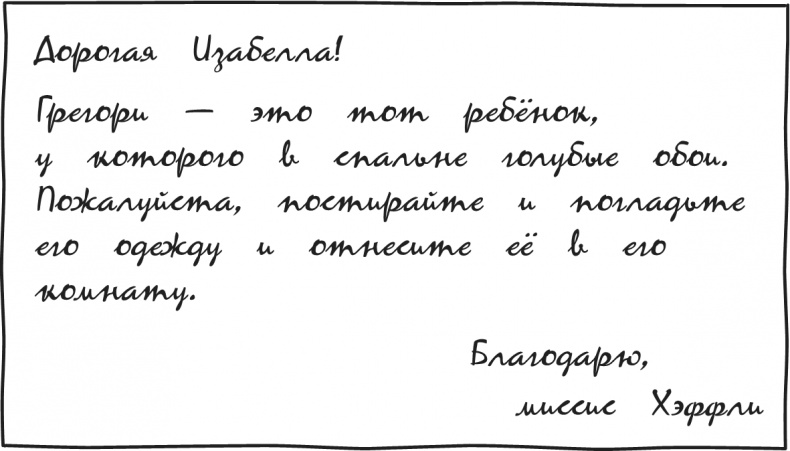 Дорогая Изабелла!
Грегори — это тот ребёнок,
у которого в спальне голубые обои.
Пожалуйста, постирайте и погладьте
его одежду и отнесите её в его
комнату.
Благодарю,
миссис Хэффли